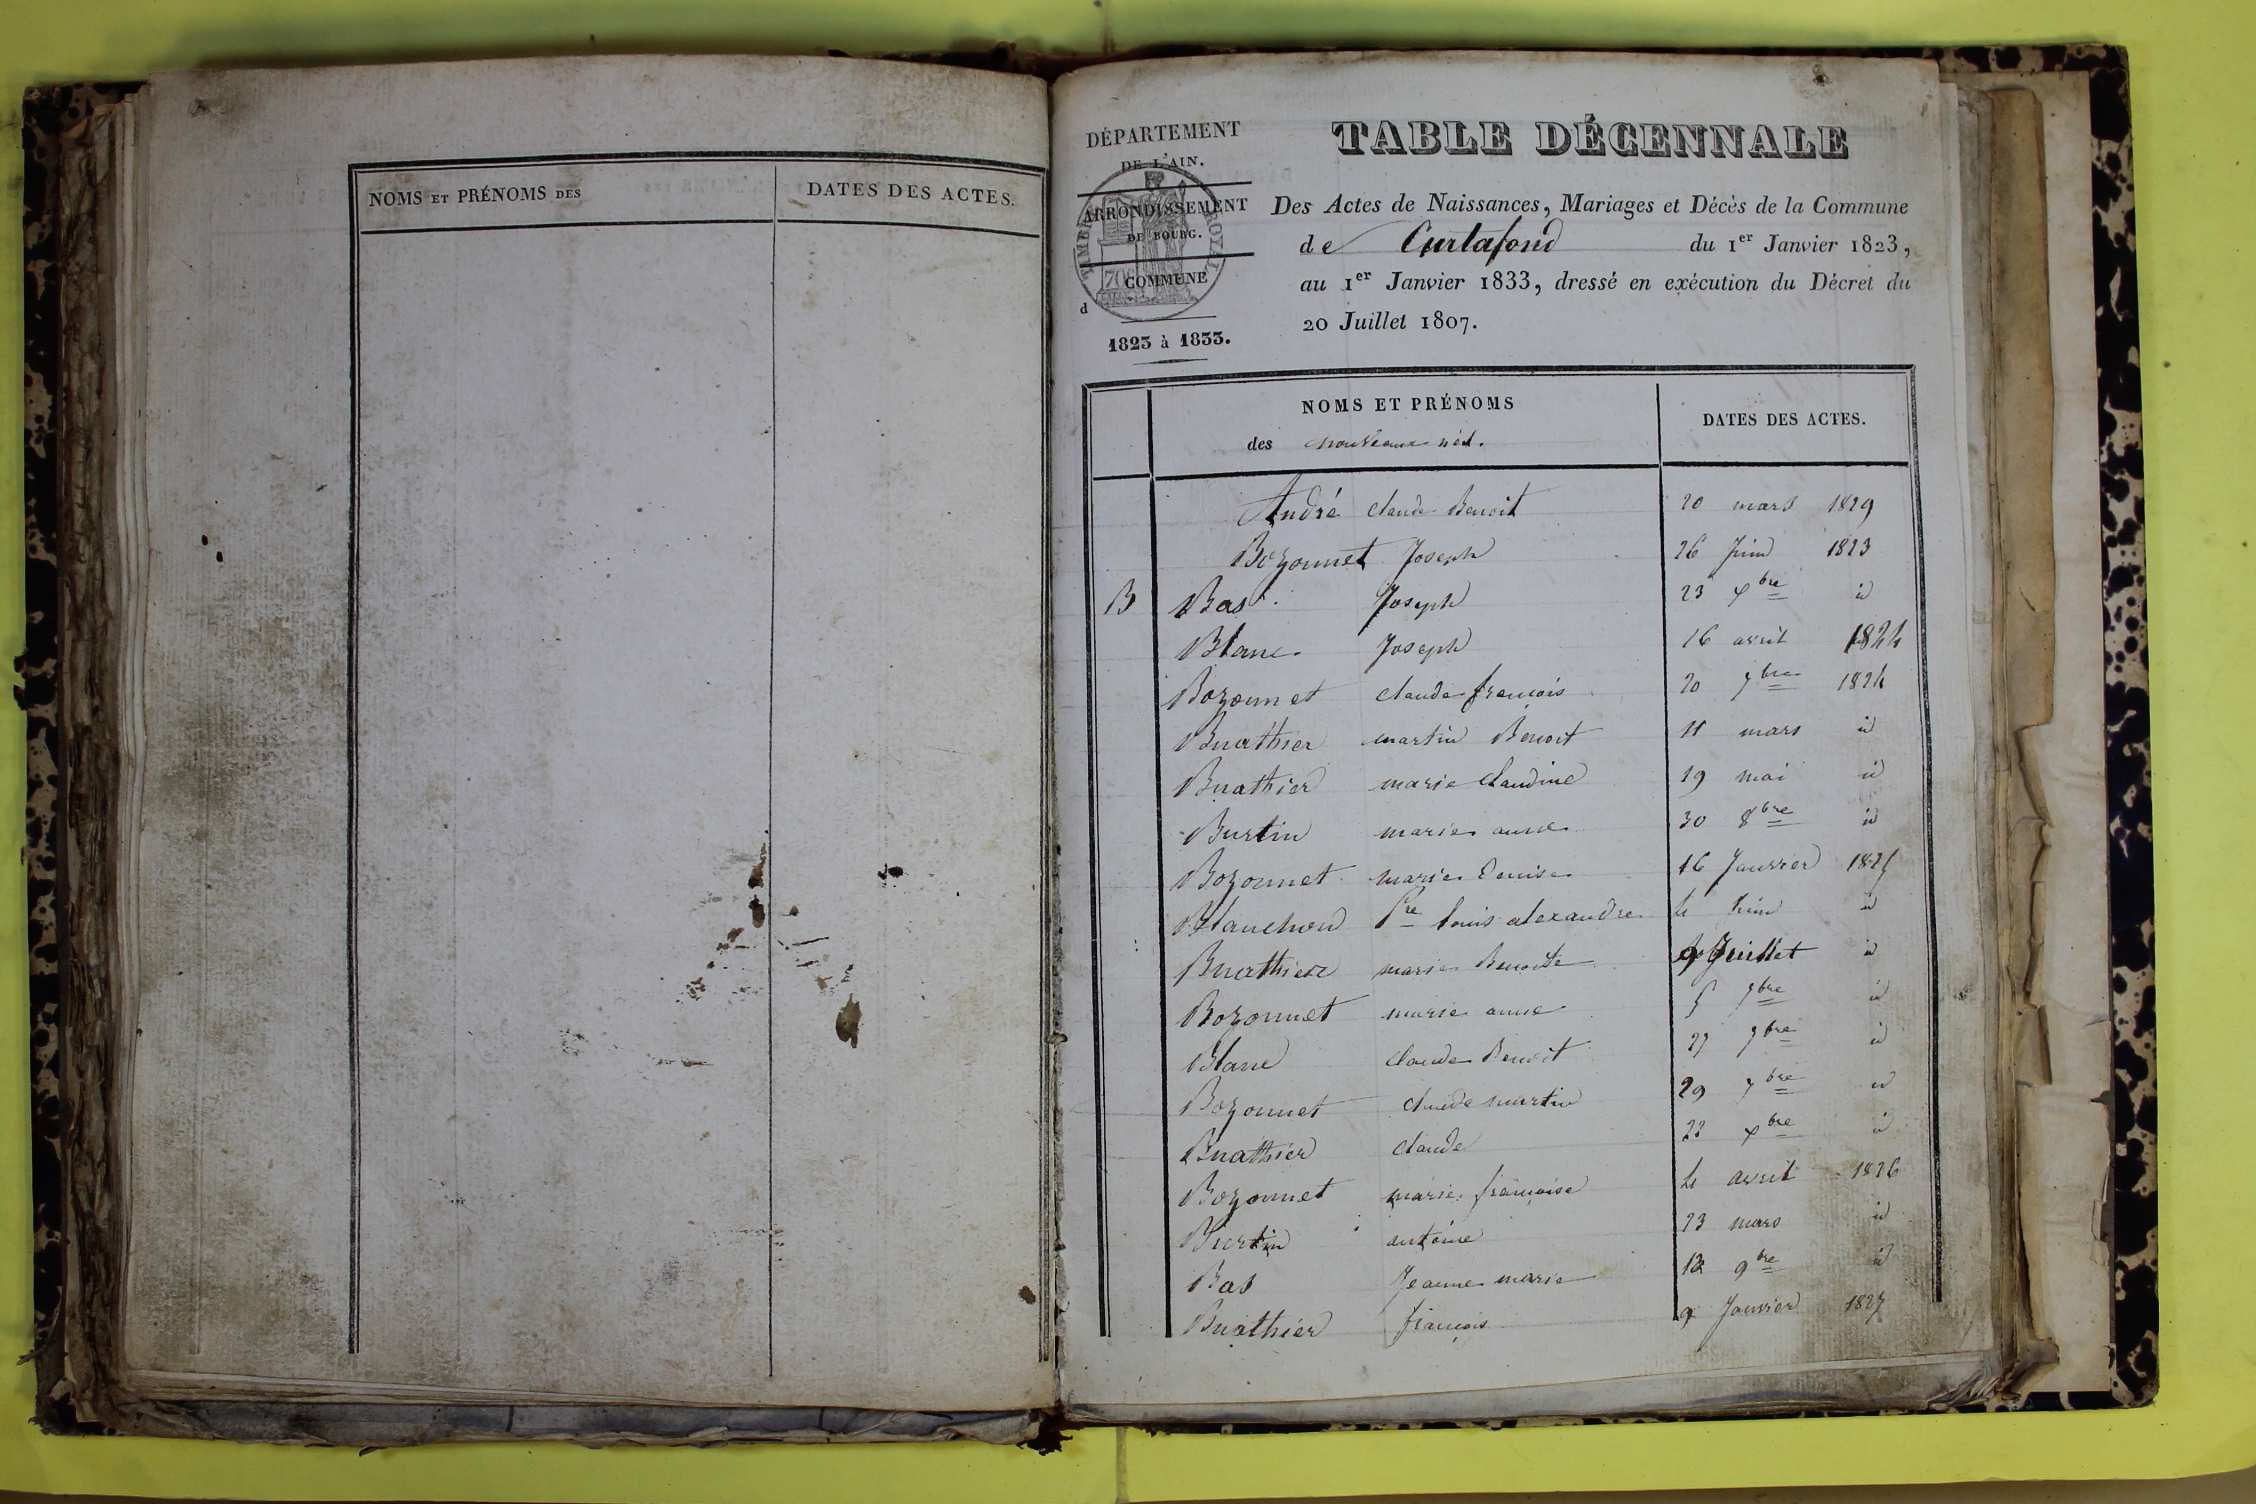 NOMS ET PRÉNOMS DES
DATES DES ACTES.
DÉPARTEMENT
DE L'AIN.
ARRONDISSEMENT
DE BOURG.
COMMUNE
d
1823 à 1833.
TIMBRE ROYAL
70
TABLE DÉCENNALE
Des Actes de Naissances, Mariages et Décès de la Commune
de Curtafond du 1er Janvier 1823,
au 1er Janvier 1833, dressé en exécution du Décret du
20 Juillet 1807.
NOMS ET PRÉNOMS
des nouveaux nés.
DATES DES ACTES.
André Claude Benoit 20 mars 1829
Bozonnet Joseph 26 Juin 1823
B Bas Joseph 23 xbre id
Blanc Joseph 16 avril 1824
Bozonnet claude françois 20 7bre 1824
Buathier martin Benoit 11 mars id
Buathier marie Claudine 19 mai id
Burtin marie anne 30 8bre id
Bozonnet marie Denise 16 Janvier 1825
Blanchon Pre louis alexandre 4 Juin id
Buathier marie Benoite 9 Juillet id
Bozonnet marie anne 5 7bre id
Blanc claude Benoit 27 7bre id
Bozonnet claude martin 29 7bre id
Buathier claude 22 xbre id
Bozonnet marie françoise 4 avril 1826
Burtin antoine 23 mars id
Bas Jeanne marie 12 9bre id
Buathier françois 9 Janvier 1827